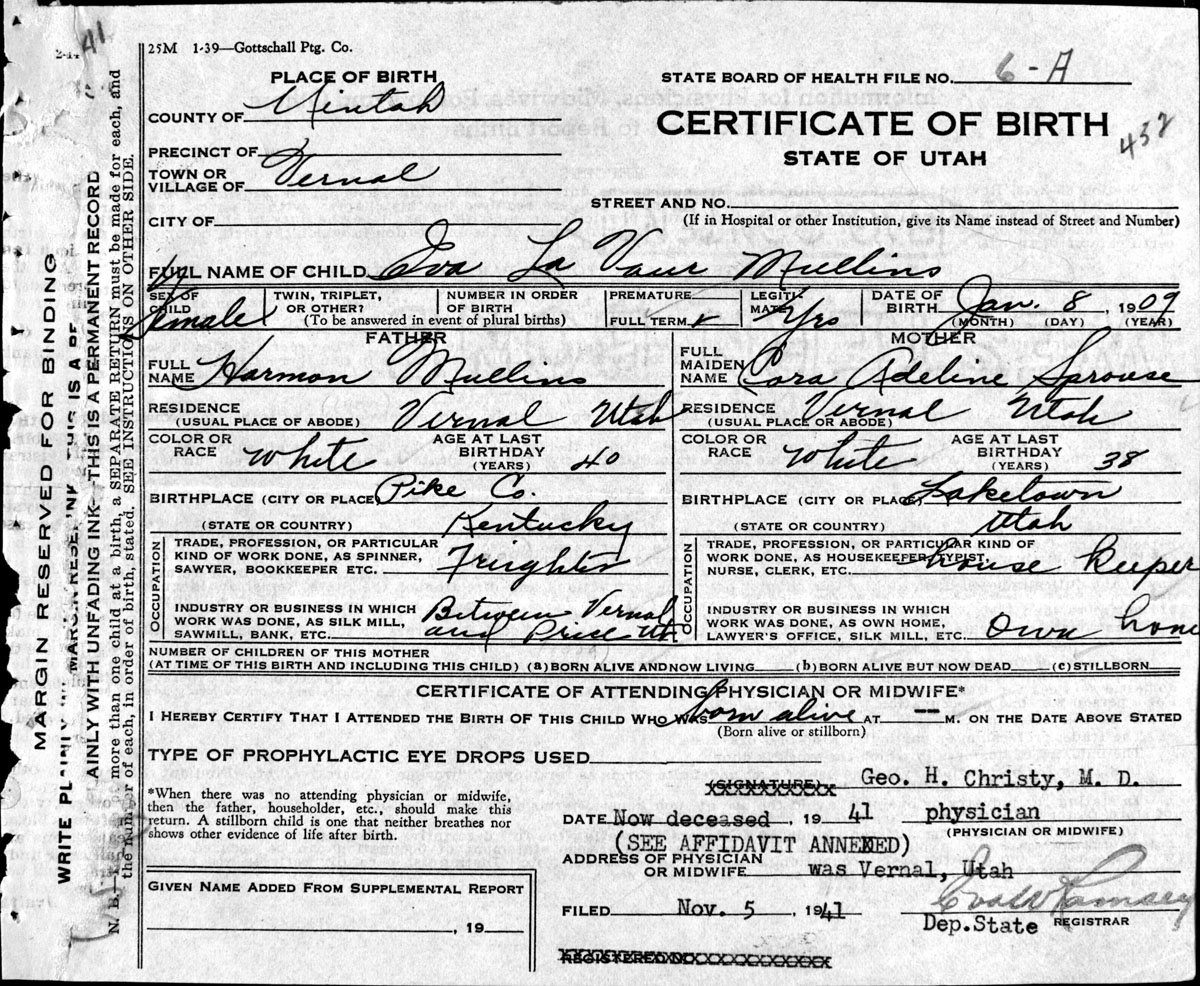 41
2-14
25M 1-39—Gottschall Ptg. Co.
PLACE OF BIRTH
COUNTY OF Uintah
PRECINCT OF
TOWN OR
VILLAGE OF Vernal
CITY OF
STATE BOARD OF HEALTH FILE NO. 6-A
CERTIFICATE OF BIRTH
432
STATE OF UTAH
STREET AND NO.
(If in Hospital or other Institution, give its Name instead of Street and Number)
FULL NAME OF CHILD Iva La Vaur Mullins
SEX OF CHILD Female
TWIN, TRIPLET, OR OTHER?
NUMBER IN ORDER OF BIRTH
(To be answered in event of plural births)
PREMATURE
FULL TERM
LEGITIMATE Yrs
DATE OF BIRTH Jan. 8, 1909
(MONTH) (DAY) (YEAR)
FATHER
FULL NAME Harmon Mullins
RESIDENCE Vernal Utah
(USUAL PLACE OF ABODE)
COLOR OR RACE White
AGE AT LAST BIRTHDAY (YEARS) 40
BIRTHPLACE (CITY OR PLACE) Pike Co.
(STATE OR COUNTRY) Kentucky
OCCUPATION
TRADE, PROFESSION, OR PARTICULAR
KIND OF WORK DONE, AS SPINNER,
SAWYER, BOOKKEEPER ETC. Freighter
INDUSTRY OR BUSINESS IN WHICH
WORK WAS DONE, AS SILK MILL,
SAWMILL, BANK, ETC. Between Vernal and Price Ut
MOTHER
FULL MAIDEN NAME Cora Adeline Sprouse
RESIDENCE Vernal Utah
(USUAL PLACE OR ABODE)
COLOR OR RACE White
AGE AT LAST BIRTHDAY (YEARS) 38
BIRTHPLACE (CITY OR PLACE) Laketown
(STATE OR COUNTRY) Utah
OCCUPATION
TRADE, PROFESSION, OR PARTICULAR KIND OF
WORK DONE, AS HOUSEKEEPER, TYPIST,
NURSE, CLERK, ETC. house keeper
INDUSTRY OR BUSINESS IN WHICH
WORK WAS DONE, AS OWN HOME,
LAWYER'S OFFICE, SILK MILL, ETC. Own home
NUMBER OF CHILDREN OF THIS MOTHER
(AT TIME OF THIS BIRTH AND INCLUDING THIS CHILD) (a) BORN ALIVE AND NOW LIVING (b) BORN ALIVE BUT NOW DEAD (c) STILLBORN
CERTIFICATE OF ATTENDING PHYSICIAN OR MIDWIFE*
I HEREBY CERTIFY THAT I ATTENDED THE BIRTH OF THIS CHILD WHO WAS born alive AT -- M. ON THE DATE ABOVE STATED
(Born alive or stillborn)
TYPE OF PROPHYLACTIC EYE DROPS USED
*When there was no attending physician or midwife,
then the father, householder, etc., should make this
return. A stillborn child is one that neither breathes nor
shows other evidence of life after birth.
(SIGNATURE) Geo. H. Christy, M. D.
DATE Now deceased, 19 41 physician
(PHYSICIAN OR MIDWIFE)
(SEE AFFIDAVIT ANNEXED)
ADDRESS OF PHYSICIAN
OR MIDWIFE was Vernal, Utah
GIVEN NAME ADDED FROM SUPPLEMENTAL REPORT
, 19
FILED Nov. 5, 1941
Ramsey
Dep.State REGISTRAR
REGISTERED NO.
MARGIN RESERVED FOR BINDING
WRITE PLAINLY
THIS IS A PE
AINLY WITH UNFADING INK—THIS IS A PERMANENT RECORD
N. B.—If more than one child at a birth, a SEPARATE RETURN must be made for each, and
the number of each, in order of birth, stated. SEE INSTRUCTIONS ON OTHER SIDE.